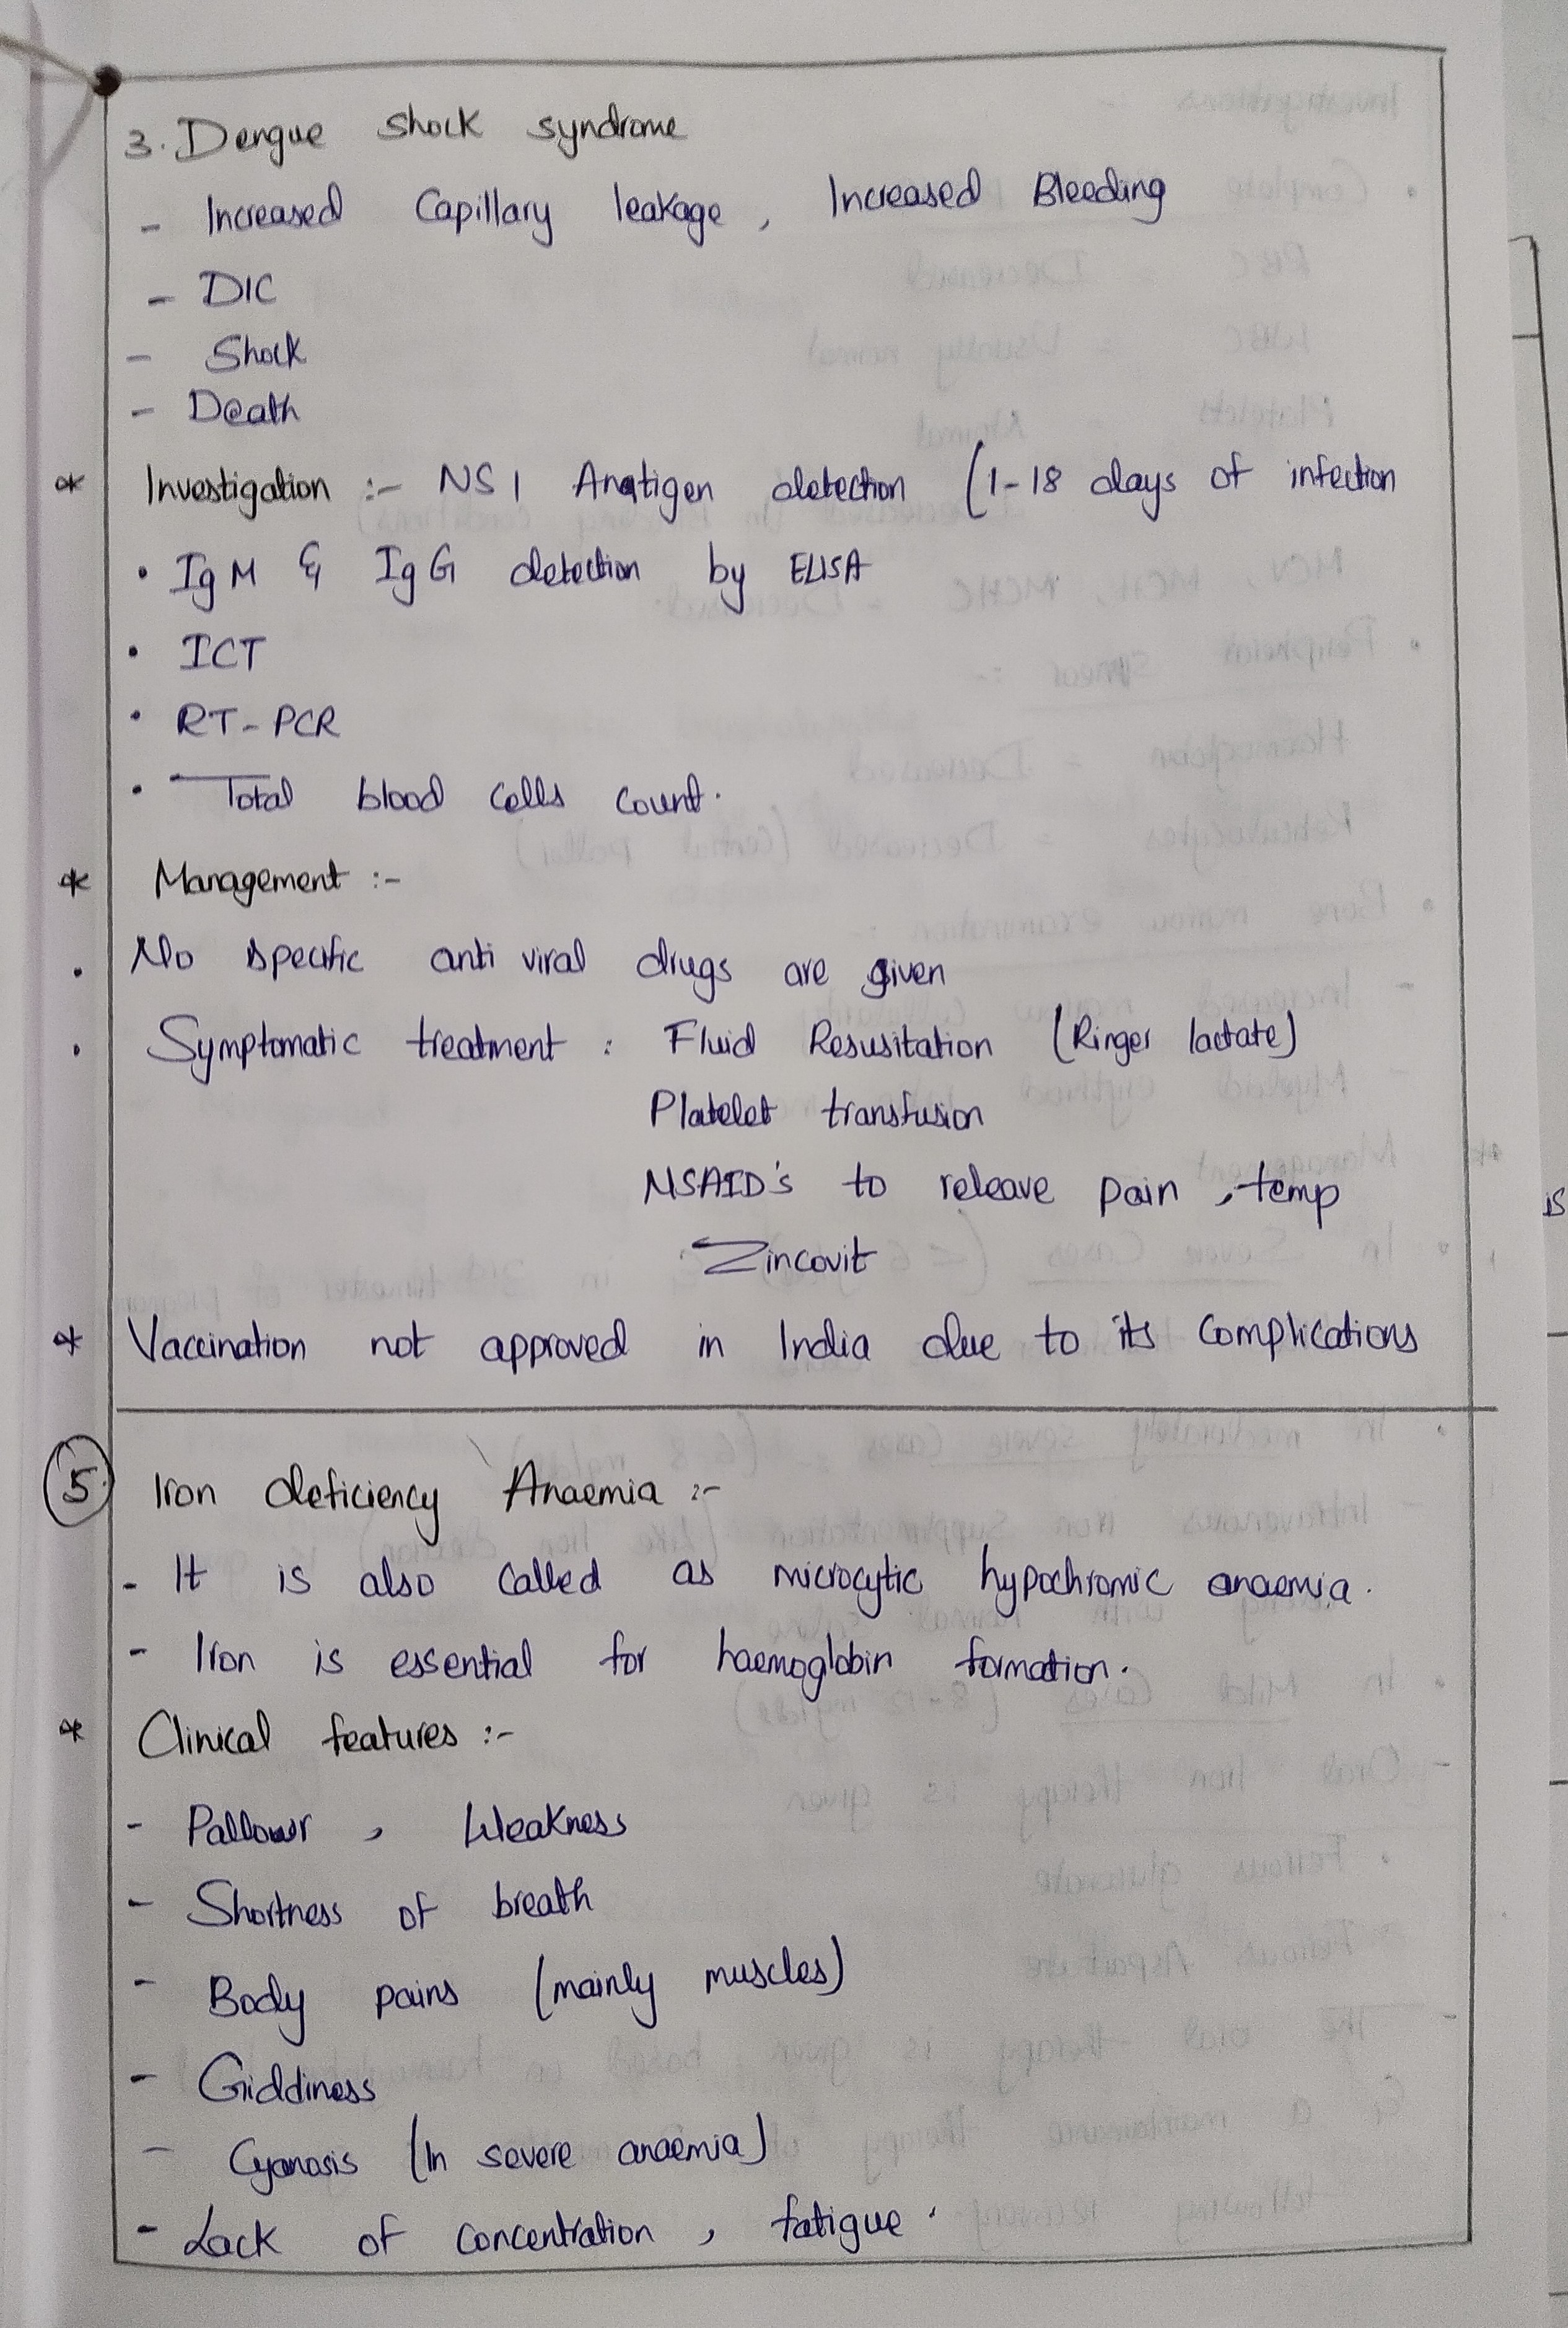 3. Dengue shock syndrome
- Increased Capillary leakage, Increased Bleeding
- DIC
- Shock
- Death
* Investigation :- NS1 Anatigen detection (1-18 days of infection
• IgM & IgG detection by ELISA
• ICT
• RT-PCR
• Total blood cells count.
* Management :-
. No specific anti viral drugs are given
. Symptomatic treatment : Fluid Resusitation (Ringer lactate)
Platelet transfusion
NSAID's to releave pain, temp
Zincovit
* Vaccination not approved in India due to its complications
5. Iron deficiency Anaemia :-
- It is also called as microcytic hypochromic anaemia.
- Iron is essential for haemoglobin formation.
* Clinical features :-
- Pallour, Weakness
- Shortness of breath
- Body pains (mainly muscles)
- Giddiness
- Cyanosis (In severe anaemia)
- Lack of concentration, fatigue.